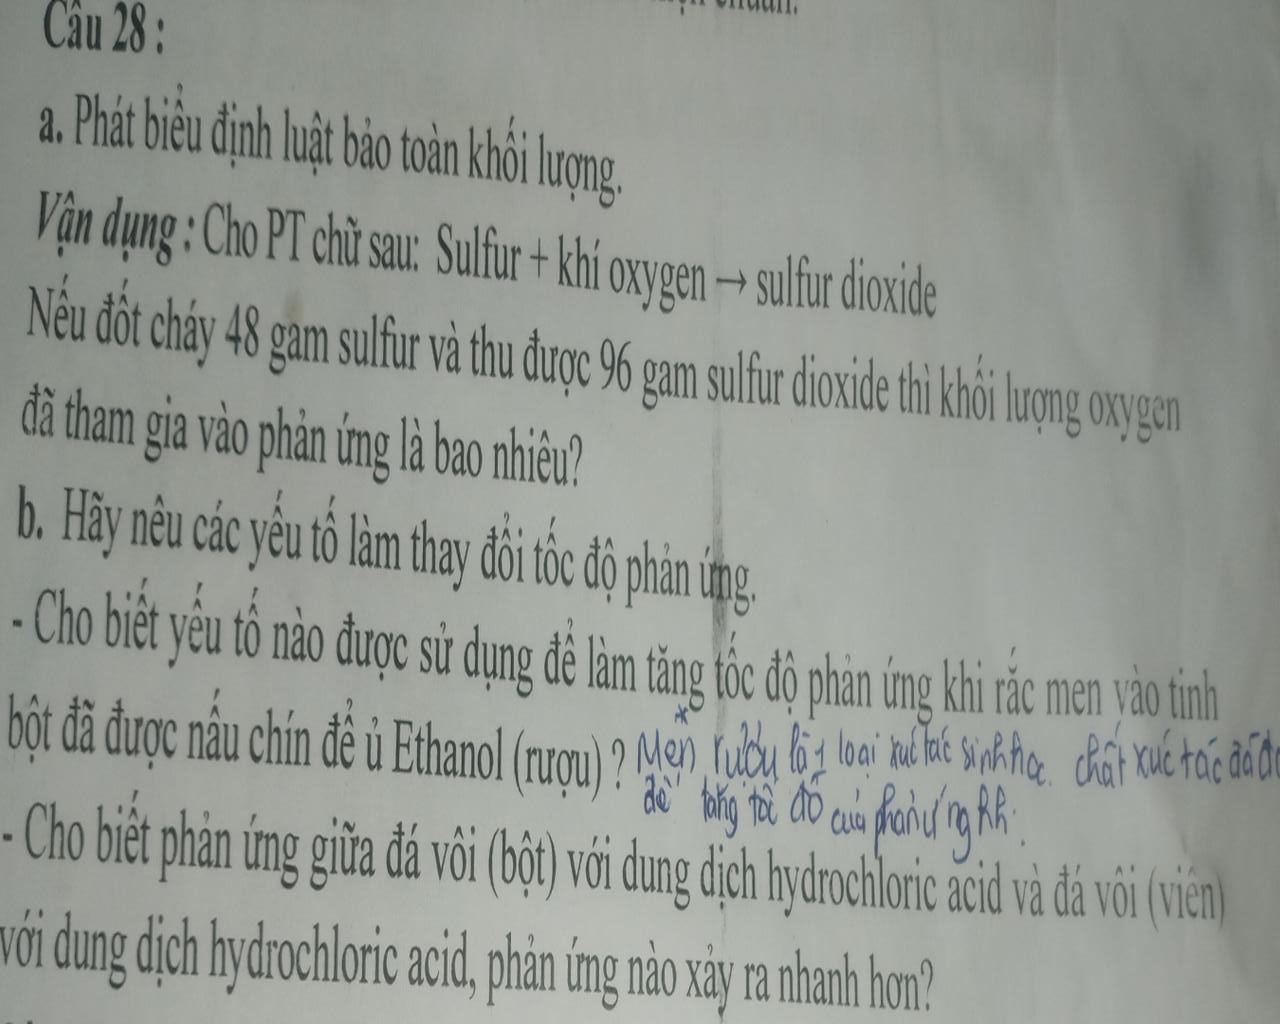 chuẩn.
Câu 28 :
a. Phát biểu định luật bảo toàn khối lượng.
Vận dụng : Cho PT chữ sau: Sulfur + khí oxygen → sulfur dioxide
Nếu đốt cháy 48 gam sulfur và thu được 96 gam sulfur dioxide thì khối lượng oxygen
đã tham gia vào phản ứng là bao nhiêu?
b. Hãy nêu các yếu tố làm thay đổi tốc độ phản ứng.
- Cho biết yếu tố nào được sử dụng để làm tăng tốc độ phản ứng khi rắc men vào tinh
bột đã được nấu chín để ủ Ethanol (rượu) ? * Men rượu là 1 loại xúc tác sinh học. chất xúc tác đã
để tăng tốc độ của phản ứng hh.
- Cho biết phản ứng giữa đá vôi (bột) với dung dịch hydrochloric acid và đá vôi (viên)
với dung dịch hydrochloric acid, phản ứng nào xảy ra nhanh hơn?